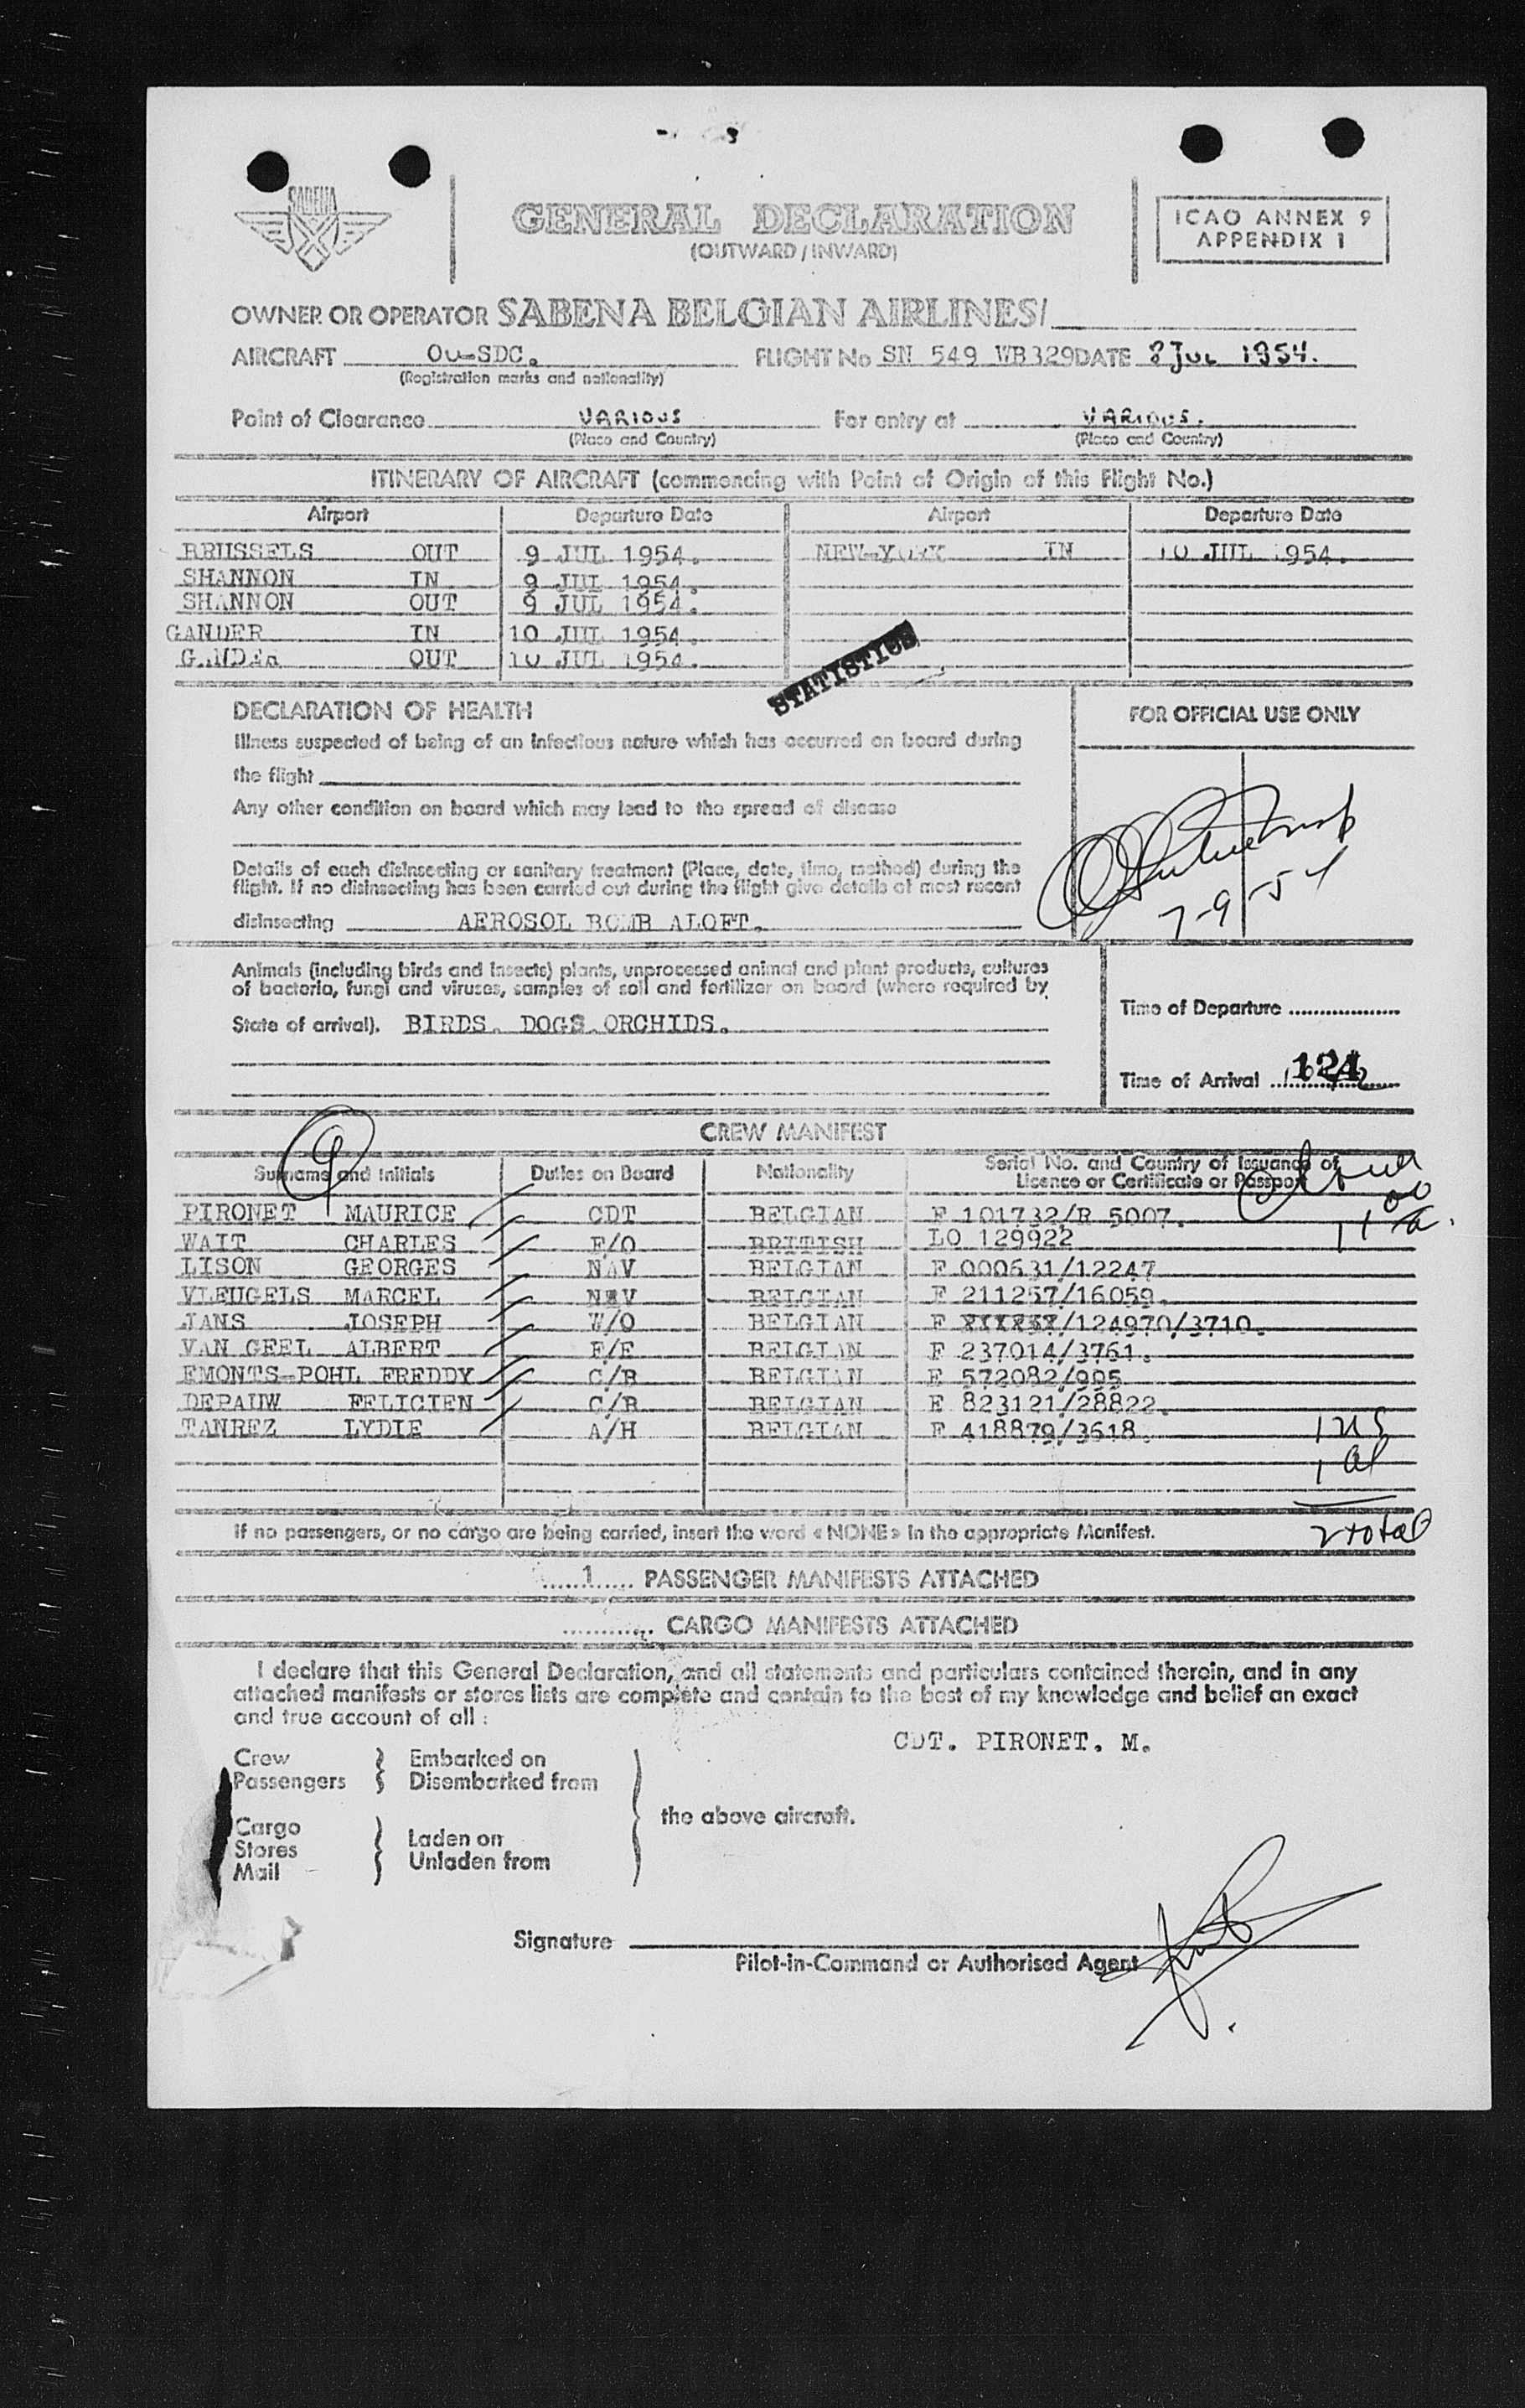 SABENA
GENERAL DECLARATION
(OUTWARD / INWARD)
ICAO ANNEX 9
APPENDIX 1
OWNER OR OPERATOR SABENA BELGIAN AIRLINES/
AIRCRAFT OO-SDC. FLIGHT No SN 549 WB329 DATE 9 JUL 1954.
(Registration marks and nationality)
Point of Clearance VARIOUS For entry at VARIOUS.
(Place and Country) (Place and Country)
ITINERARY OF AIRCRAFT (commencing with Point of Origin of this Flight No.)
Airport Departure Date Airport Departure Date
BRUSSELS OUT 9 JUL 1954. NEW-YORK IN 10 JUL 1954.
SHANNON IN 9 JUL 1954.
SHANNON OUT 9 JUL 1954.
GANDER IN 10 JUL 1954.
GANDER OUT 10 JUL 1954.
STATISTICS
DECLARATION OF HEALTH
FOR OFFICIAL USE ONLY
Illness suspected of being of an infectious nature which has occurred on board during
the flight
Any other condition on board which may lead to the spread of disease
Details of each disinsecting or sanitary treatment (Place, date, time, method) during the
flight. If no disinsecting has been carried out during the flight give details of most recent
disinsecting AEROSOL BOMB ALOFT.
7-9-54
Animals (including birds and insects) plants, unprocessed animal and plant products, cultures
of bacteria, fungi and viruses, samples of soil and fertilizer on board (where required by
State of arrival). BIRDS. DOGS. ORCHIDS.
Time of Departure
Time of Arrival
CREW MANIFEST
9
Surname and Initials Duties on Board Nationality Serial No. and Country of Issuance of
Licence or Certificate or Passport
PIRONET MAURICE CDT BELGIAN F 101732/R 5007.
WAIT CHARLES F/O BRITISH LO 129922
LISON GEORGES NAV BELGIAN F 000631/12247
VLEUGELS MARCEL NAV BELGIAN F 211257/16059.
JANS JOSEPH W/O BELGIAN F XXXXXX/124970/3710.
VAN GEEL ALBERT F/E BELGIAN F 237014/3761.
EMONTS-POHL FREDDY C/B BELGIAN E 572082/995
DEPAUW FELICIEN C/B BELGIAN E 823121/28822.
TANREZ LYDIE A/H BELGIAN F 418879/3618.
1 US
1 al
2 total
If no passengers, or no cargo are being carried, insert the word « NONE » in the appropriate Manifest.
1 PASSENGER MANIFESTS ATTACHED
CARGO MANIFESTS ATTACHED
I declare that this General Declaration, and all statements and particulars contained therein, and in any
attached manifests or stores lists are complete and contain to the best of my knowledge and belief an exact
and true account of all :
CDT. PIRONET. M.
Crew Embarked on
Passengers Disembarked from
the above aircraft.
Cargo
Stores Laden on
Mail Unladen from
Signature
Pilot-in-Command or Authorised Agent